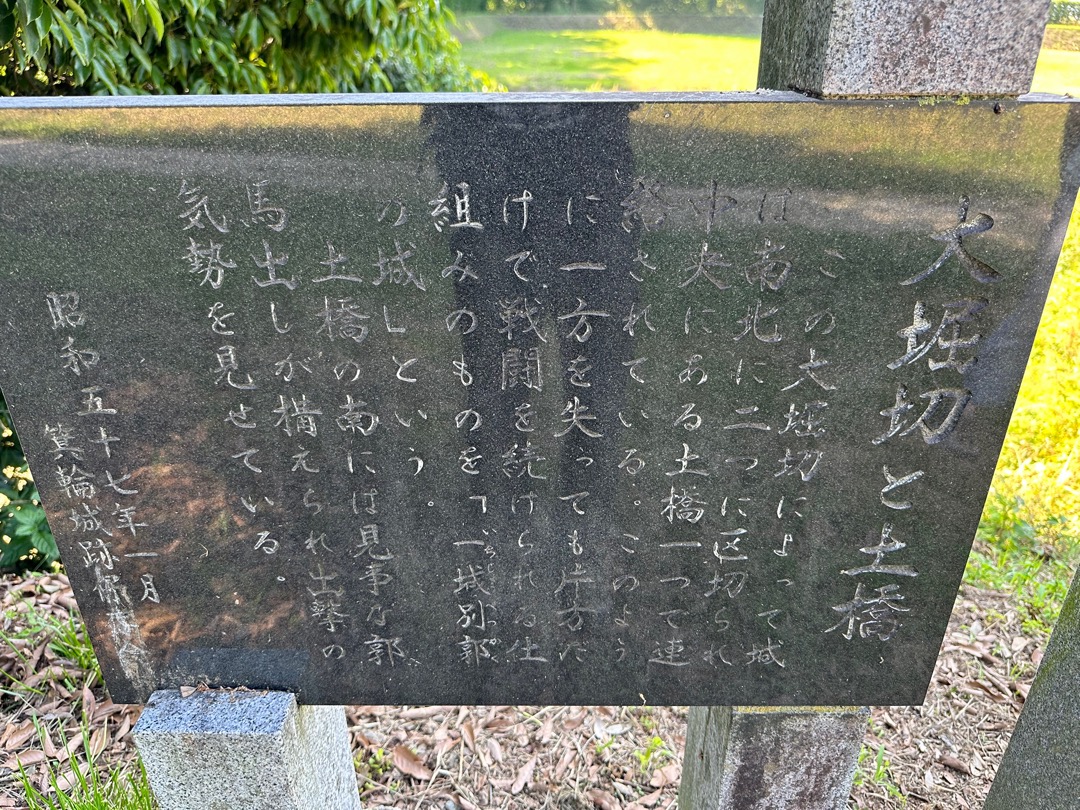 大堀切と土橋
この大堀切によって城
は南北に二つに区切られ
中央にある土橋一つで連
絡されている。このよう
に一方を失っても片方だ
けで戦闘を続けられる仕
組みのものを「一城別郭
の城」という。
土橋の南には見事な郭
馬出しが構えられ出撃の
気勢を見せている。
昭和五十七年一月
箕輪城跡保存会